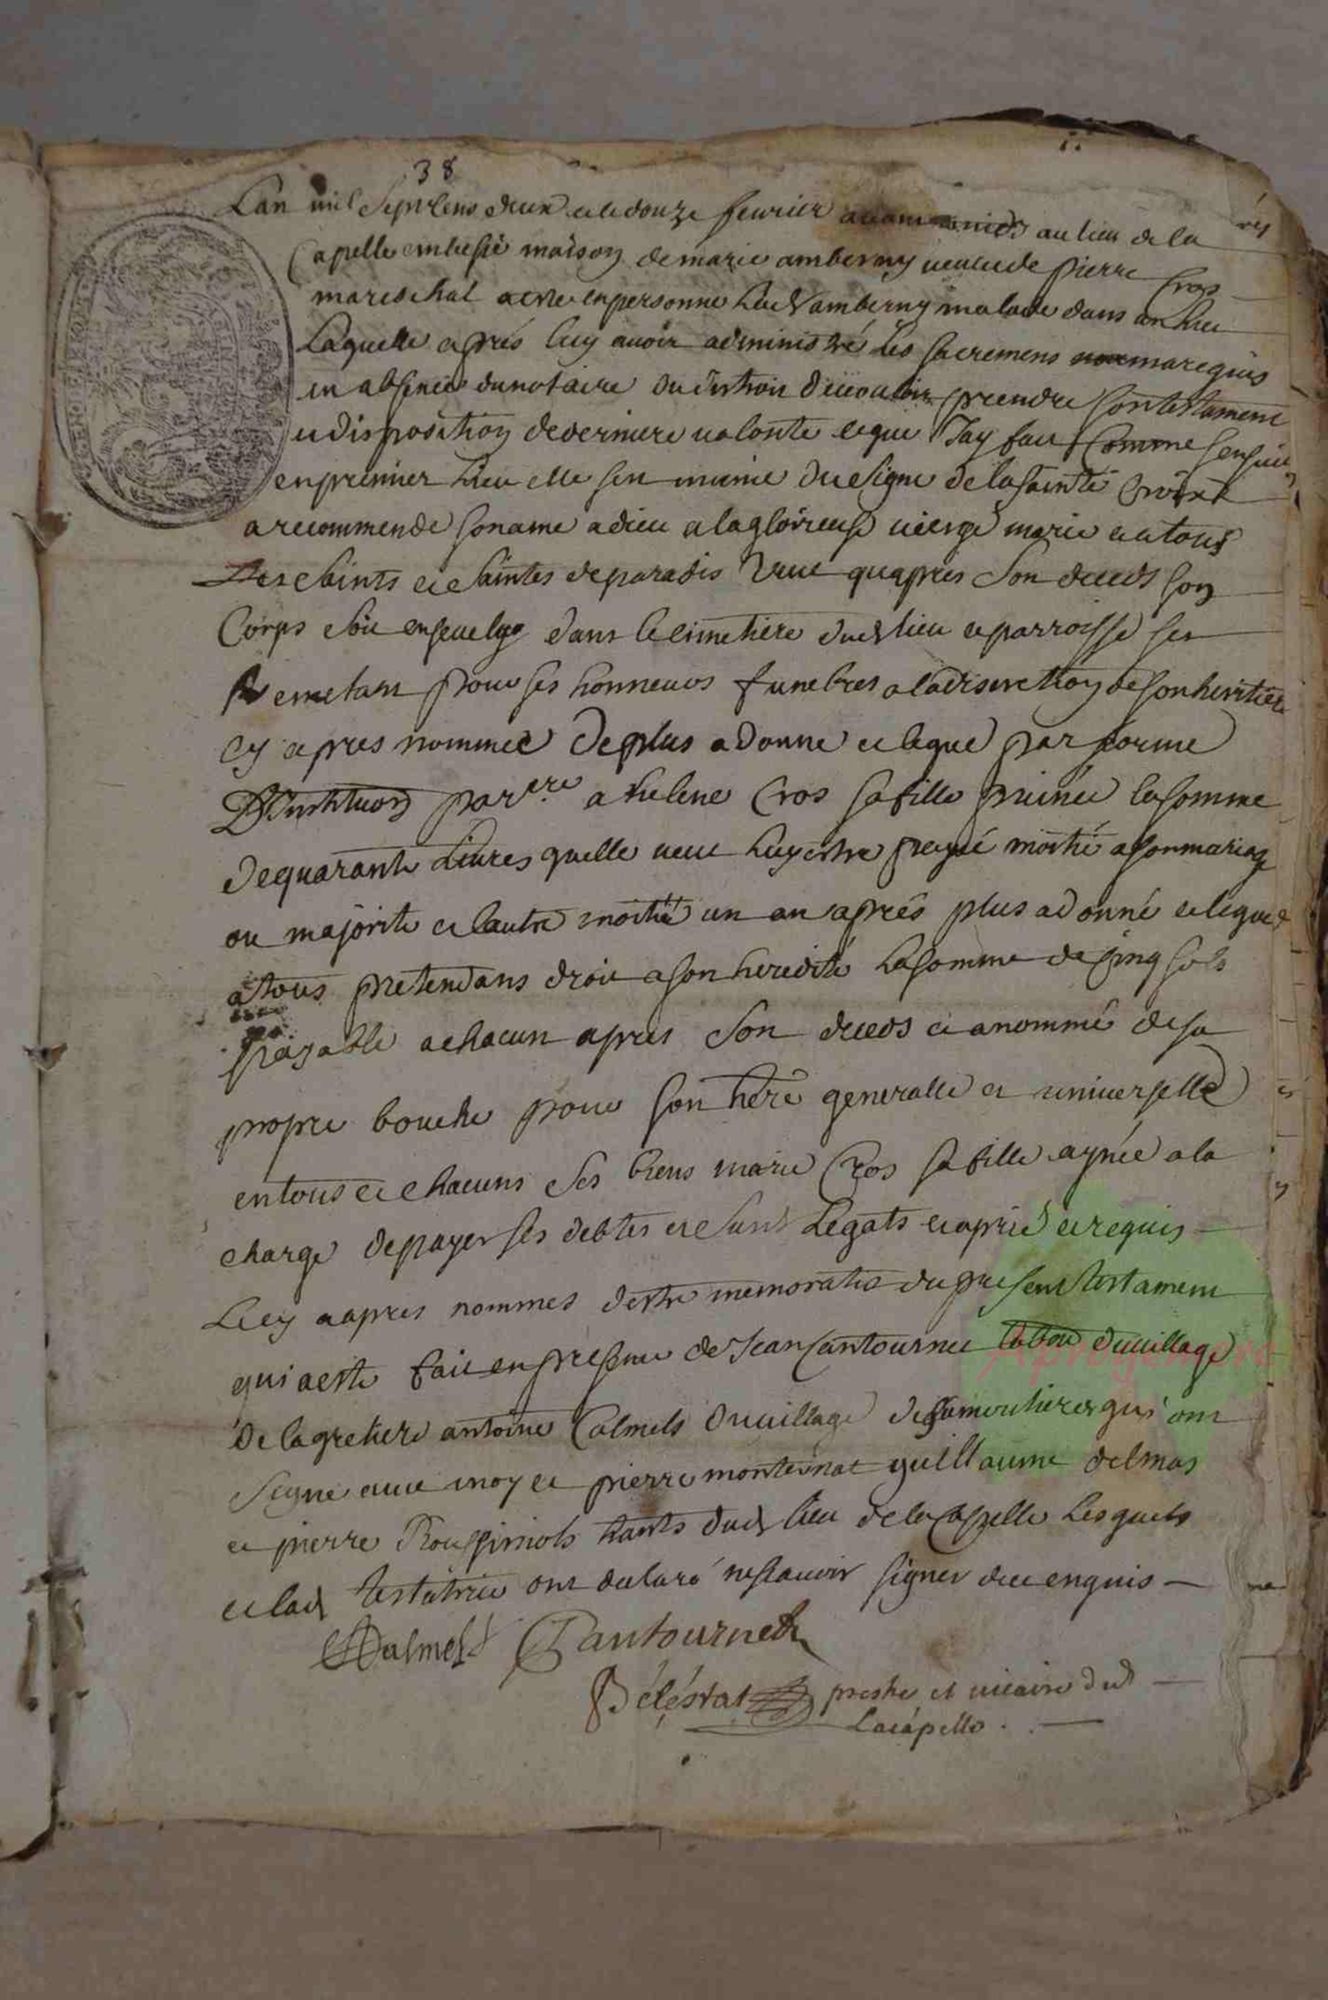 38
Lan mil sept cens deux et le douze fevrier avant midy au lieu de la
Capelle maison de marie amberny veuve de pierre Cros
mareschal a esté en personne lad amberny malade dans un lict
Laquelle aprés luy avoir administré les sacremens marequis
en absence du notaire du destroit de recevoir prendre son testament
et disposition de derniere volonté ce que Jay fait Comme sensuit
en premier lieu elle sest munie du signe de la sainte Croix
a recommende son ame a dieu a la glorieuse vierge marie et a tous
Les saints et saintes de paradis veut quapres son deceds son
Corps soit ensevely dans le cimetiere dud lieu et parroisse ses
Remetant pour ses honneurs funebres a la discrection de son heritiere
cy apres nommée de plus a donné et legué par forme
Dinstitution par.ere a helene Cros sa fille puinée la somme
de quarante Livres quelle veut luy estre payé moitié a son mariage
ou majorité et lautre moitié un an aprés plus a donné et legué
a tous pretendans droit a son heredité La somme de cinq sols
payable a chacun apres son deceds et a nommé de sa
propre bouche pour son here generalle et universelle
en tous et chacuns ses biens marie Cros sa fille aynée a la
charge de payer ses debtes et susd Legats et a prié et requis
Les cy apres nommes destre memoratifs du present testament
qui a esté fait en presence de Jean Cantournet du village
de lagretiere antoine Calmels du village de qui ont
signé avec moy et pierre monteinat guilhaume delmas
et pierre Roussiniols hants dud lieu de la Capelle Lesquels
et lad testatrice ont declaré ne scavoir signer de ce enquis
Calmels Cantournet
Béléstat prestre et vicaire dud
Lacapelle